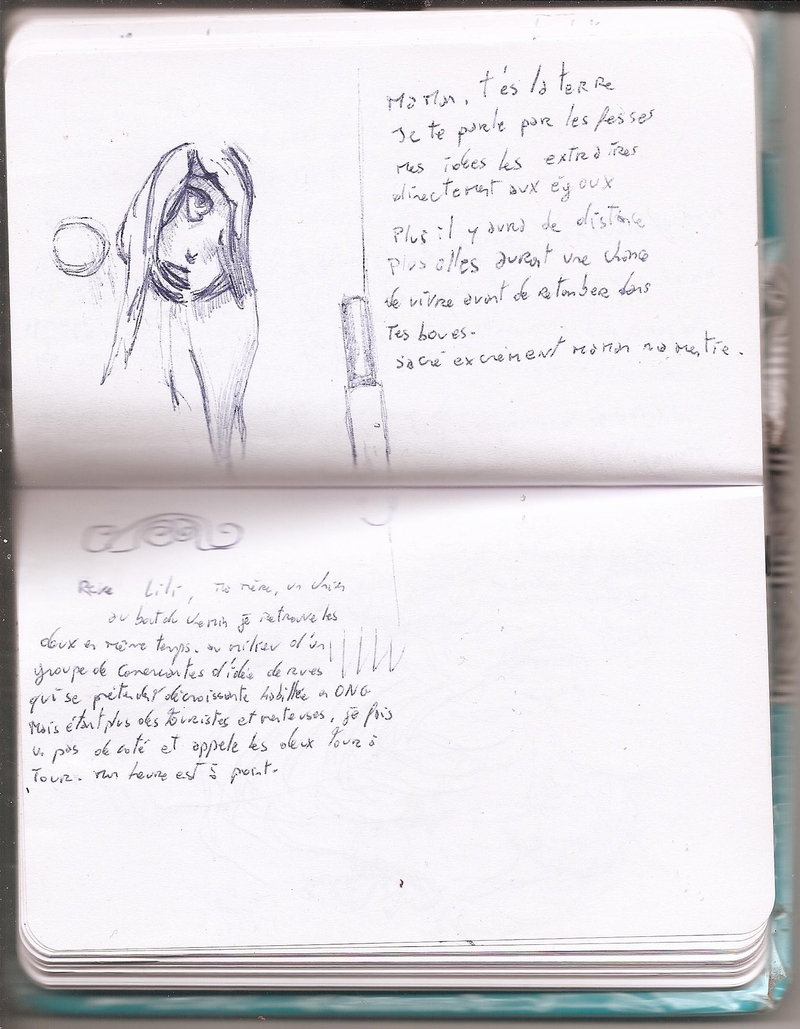 Maman, t'es la terre
Je te parle par les fesses
mes idées les extraires
directement aux égoux
Plus il y aura de distance
Plus elles auront une chance
de vivre avant de retomber dans
Tes boues.
Sacré excrément maman ma mère
Reve Lili, ma mère, un chien
au bout du chemin je retrouve les
deux en même temps. au milieu d'un
groupe de d'idée de rues
qui se prétendent décroissante habillée en ONG
Mais étant plus des touristes et menteuses, je fais
un pas de coté et appele les deux tour à
Tour. mon heure est à point.